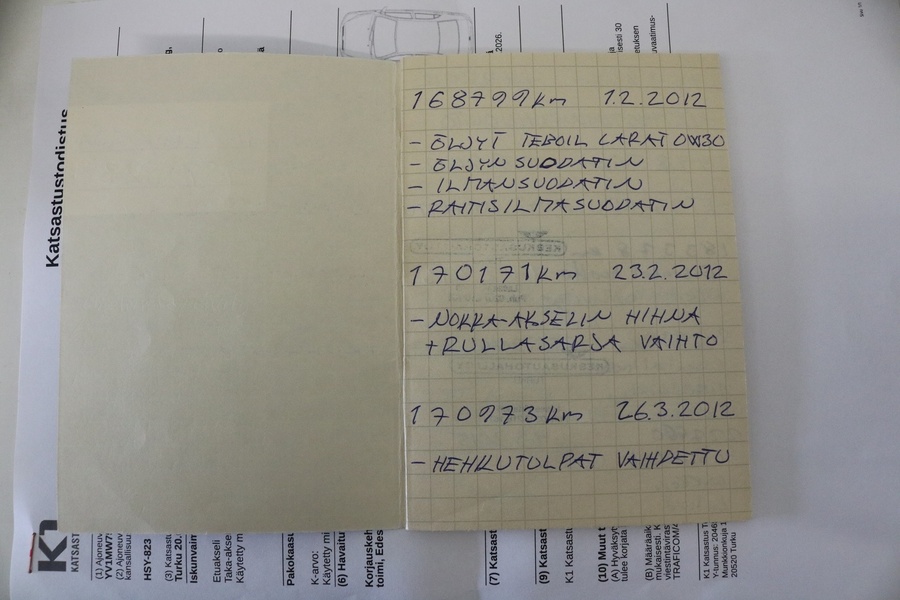 168799km 1.2.2012
- ÖLJYT TEBOIL CARAT 0W30
- ÖLJYNSUODATIN
- ILMANSUODATIN
- RAITISILMASUODATIN
170171km 23.2.2012
- NOKKA-AKSELIN HIHNA
+RULLASARJA VAIHTO
170973km 26.3.2012
- HEHKUTULPAT VAIHDETTU
Katsastustodistus
K1
KATSAST
(1) Ajoneuv
YV1MW7
(2) Ajoneuv
kansallisuu
HSY-823
(3) Katsastu
Turku 20.
Iskunvaim
Etuakseli
Taka-akse
Käytetty m
Pakokaasu
K-arvo:
Käytetty mi
(6) Havaitu
Korjauskeh
toimi, Edes
(7) Katsast
(9) Katsast
K1 Katsast
(10) Muut t
(A) Hyväksyt
tulee korjata
(B) Määräaik
mukaisesti. K
viestintäviras
TRAFICOM/
K1 Katsastus T
Y-tunnus: 2046
Munkkionkuja 1
20520 Turku
2026.
isesti 30
etuksen
uvaatimus-